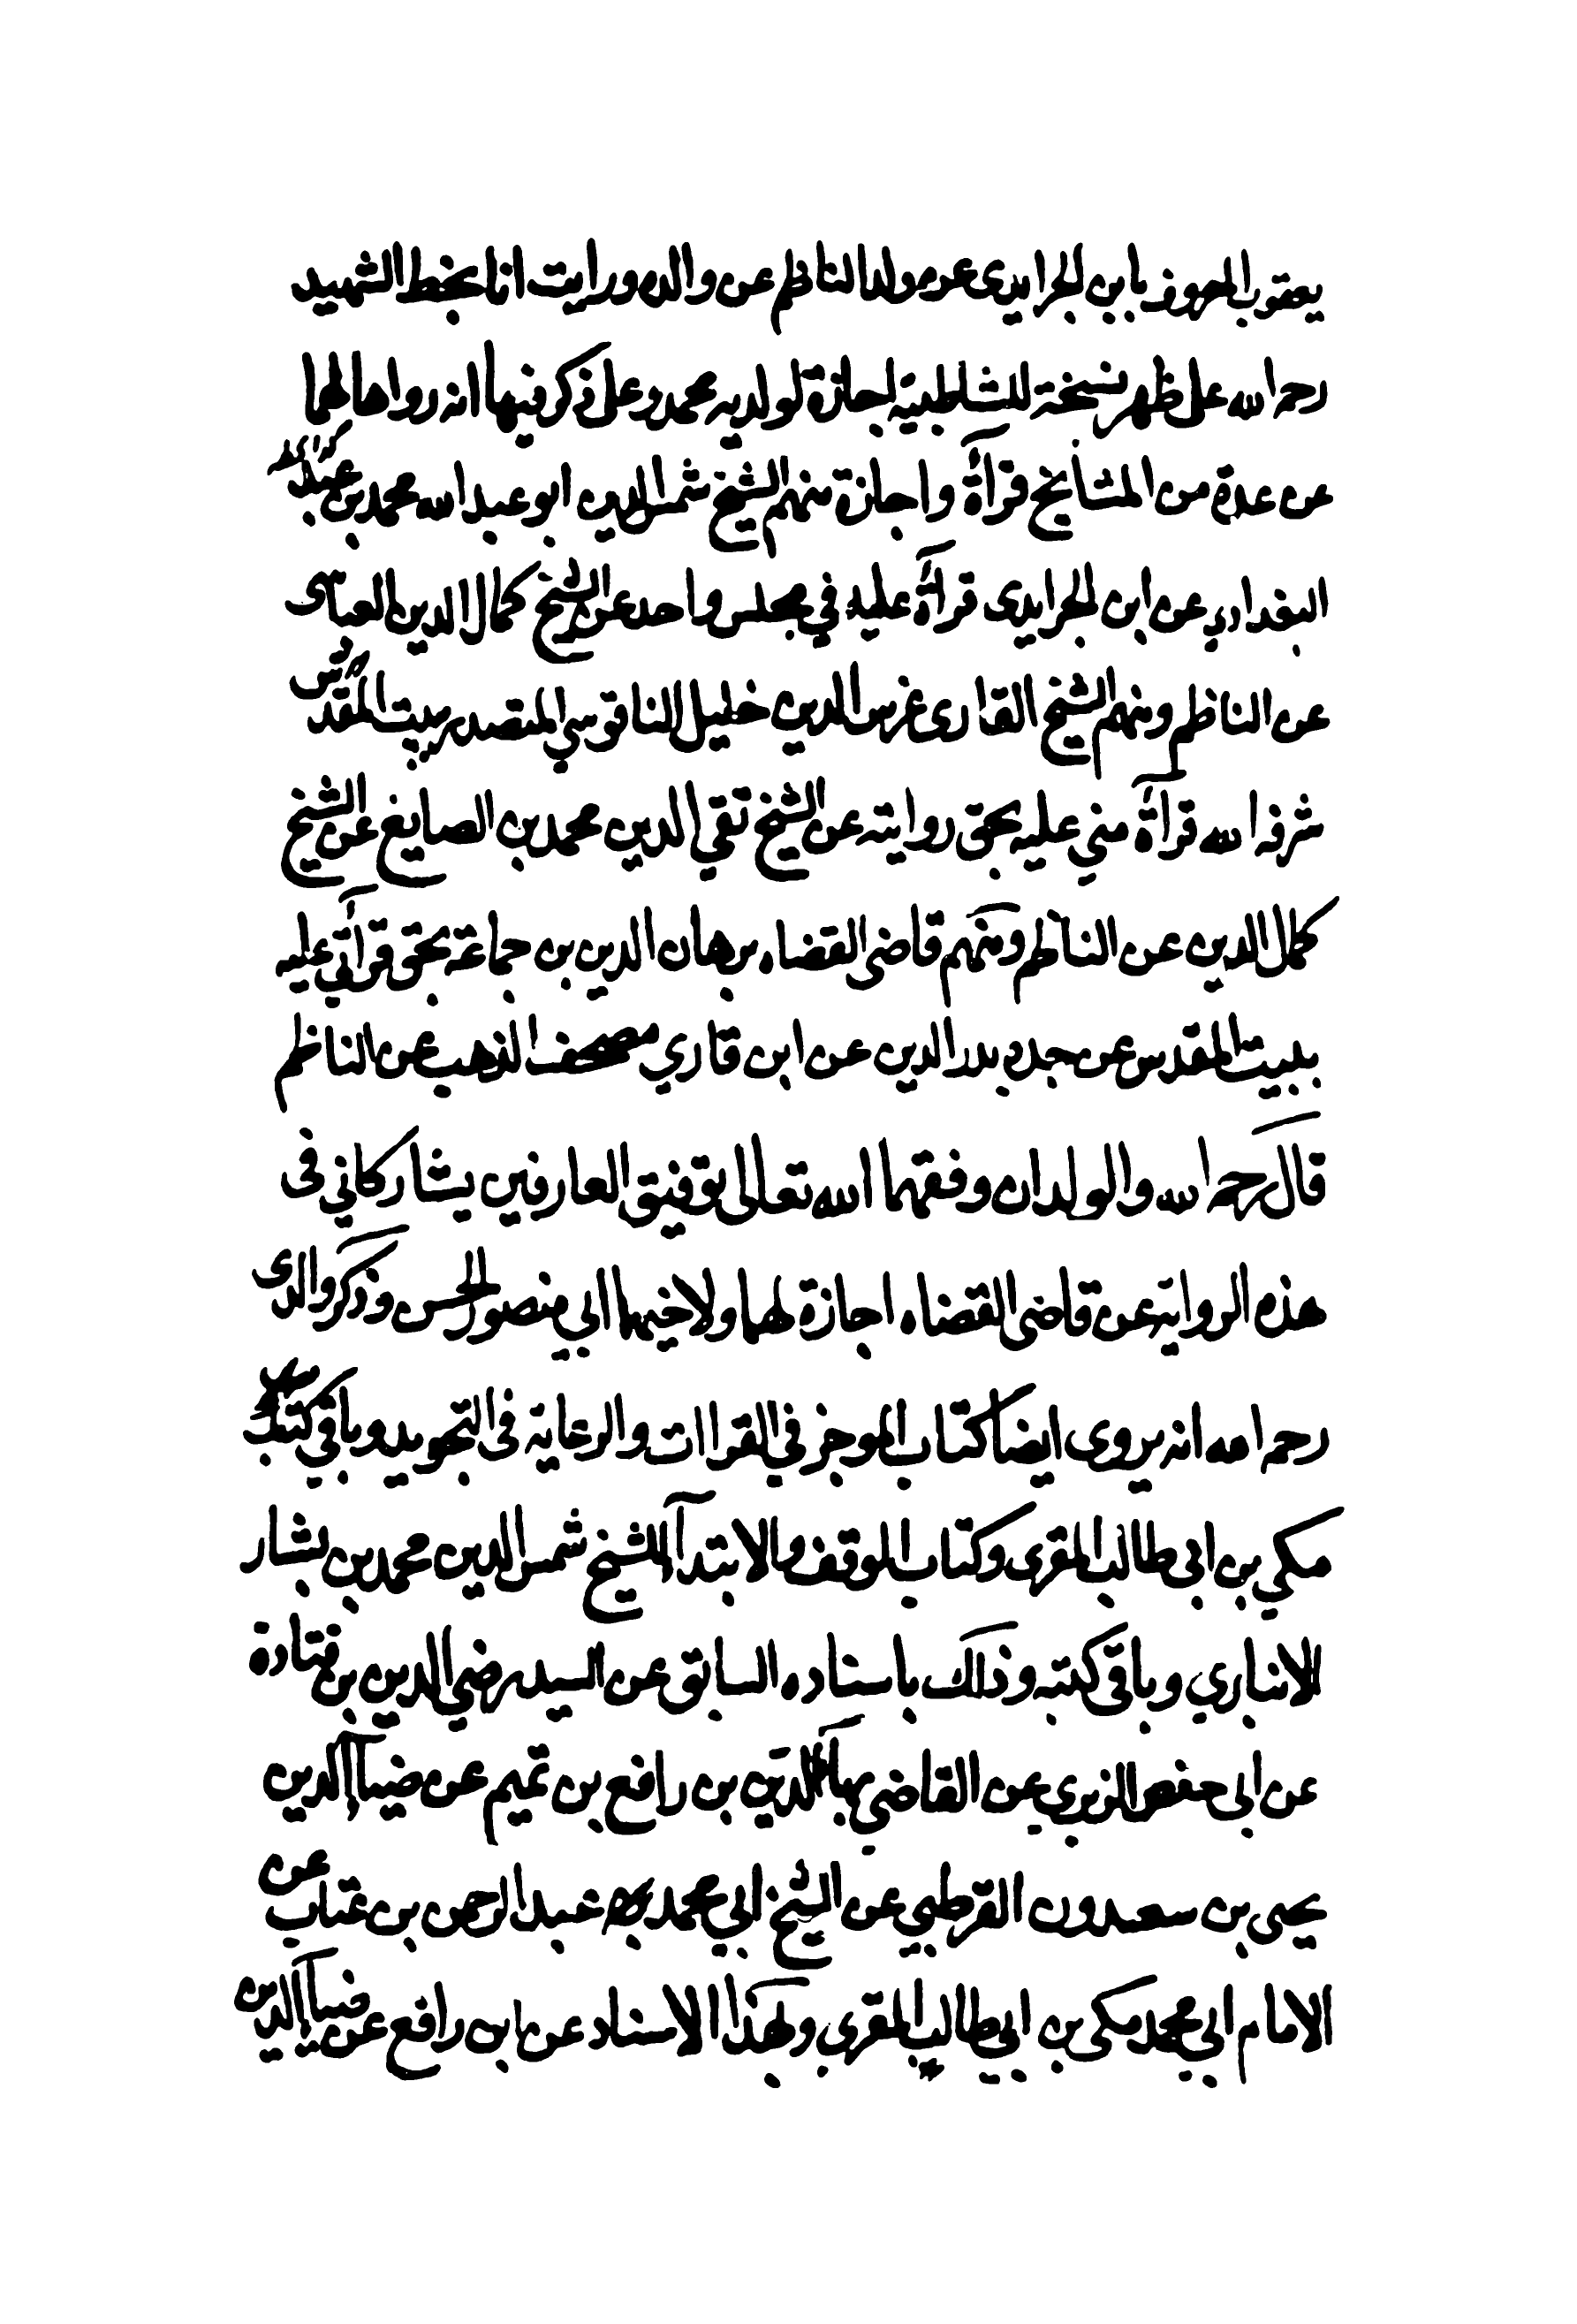 يعقوب المعروف بابن الجرايدى عن ولد الناظم عن والده ورايت انا بخط الشهيد
رحمه الله على ظهر نسخة للشاطبية اجازة لولديه محمد وعلى ذكر فيها انه رواها لهما
عن عدة من المشايخ قرآءة واجازة منهم الشيخ شمس الدين ابو عبد الله محمد بن عبد الله
البغدادي عن ابن الجرايدى قرآءة عليه في مجلس واحد عن الشيخ كمال الدين العباسى
عن الناظم ومنهم الشيخ القارى غرس الدين خليل الناقوسي المتصدر ببيت المقدس
شرفه الله قرآءة مني عليه بحق روايته عن الشيخ تقي الدين محمد بن الصايغ عن الشيخ
كمال الدين عن الناظم ومنهم قاضى القضاه برهان الدين بن جماعة بحق قرآتي عليه
ببيت المقدس عن جده بدر الدين عن ابن قاري مصحف الذهب عن الناظم
قال رحمه الله والولدان وفقهما الله تعالى توفيق العارفين يشاركاني فى
هذه الرواية عن قاضى القضاه اجازة لهما ولاخيهما ابي منصور الحسن وذكر والدى
رحمه الله انه يروى ايضا كتاب الموجز في القراات والرعاية فى التجويد وباقي كتب
مكي بن ابى طالب المقرى وكتاب الوقف والابتدآ للشيخ شمس الدين محمد بن بشار
الانباري وباقى كتبه وذلك باسناده السابق عن السيد رضي الدين بن قتادة
عن ابى حفص الزبري عن القاضي بهآ الدين بن رافع بن تميم عن ضيآ الدين
يحيى بن سعدون القرطبي عن الشيخ ابي محمد عبد الرحمن بن عتاب عن
الامام ابي محمد مكى بن ابي طالب المقرى وبهذا الاسناد عن ابن رافع عن ضيآ الدين